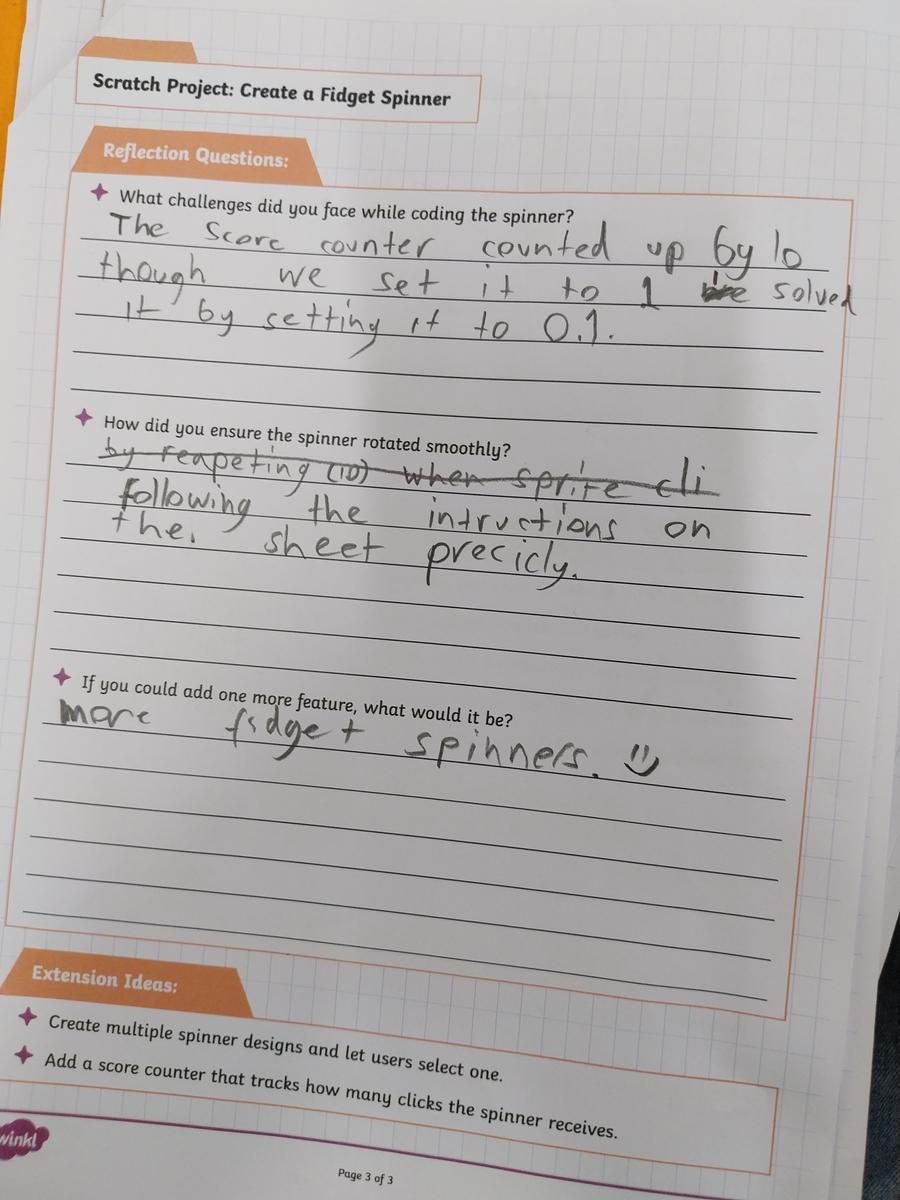 Scratch Project: Create a Fidget Spinner
Reflection Questions:
What challenges did you face while coding the spinner?
The score counter counted up by 10
though we set it to 1 we solved
it by setting it to 0.1.
How did you ensure the spinner rotated smoothly?
by reapeting (10) when sprite cli
following the intructions on
the. sheet precicly.
If you could add one more feature, what would it be?
more fidget spinners.
Extension Ideas:
Create multiple spinner designs and let users select one.
Add a score counter that tracks how many clicks the spinner receives.
winkl
Page 3 of 3